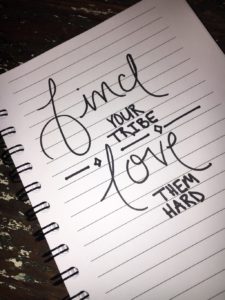 find
YOUR
TRIBE
love
THEM
HARD